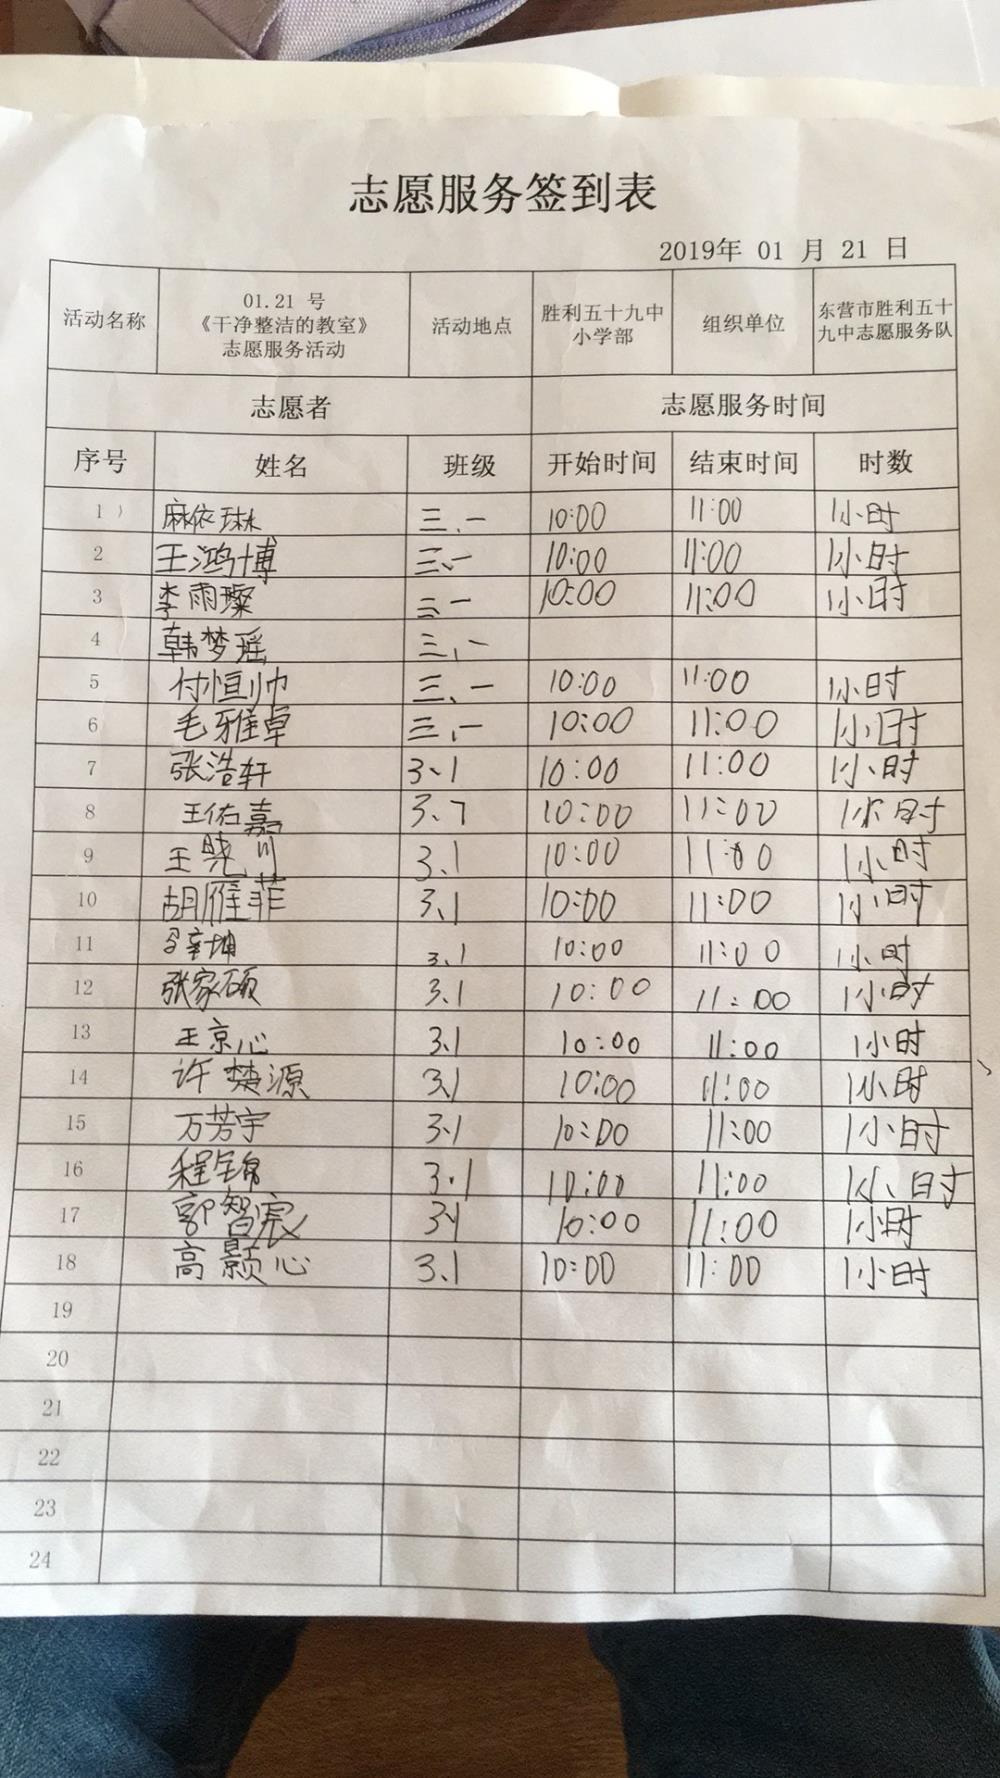 志愿服务签到表
2019年 01 月 21 日
活动名称 01.21 号《干净整洁的教室》志愿服务活动 活动地点 胜利五十九中小学部 组织单位 东营市胜利五十九中志愿服务队
志愿者 志愿服务时间
序号 姓名 班级 开始时间 结束时间 时数
1 麻依琳 三、一 10:00 11:00 1小时
2 王鸿博 三、一 10:00 11:00 1小时
3 李雨璨 三、一 10:00 11:00 1小时
4 韩梦瑶 三、一
5 付恒帅 三、一 10:00 11:00 1小时
6 毛雅卓 三、一 10:00 11:00 1小时
7 张浩轩 3、1 10:00 11:00 1小时
8 王佑嘉 3、1 10:00 11:00 1小时
9 王晓川 3、1 10:00 11:00 1小时
10 胡雁菲 3、1 10:00 11:00 1小时
11 3、1 10:00 11:00 1小时
12 张家硕 3.1 10:00 11:00 1小时
13 王京心 3.1 10:00 11:00 1小时
14 许楚源 3.1 10:00 11:00 1小时
15 万芳宇 3.1 10:00 11:00 1小时
16 程锦 3.1 10:00 11:00 1小时
17 郭智宸 3.1 10:00 11:00 1小时
18 高颢心 3.1 10:00 11:00 1小时
19
20
21
22
23
24